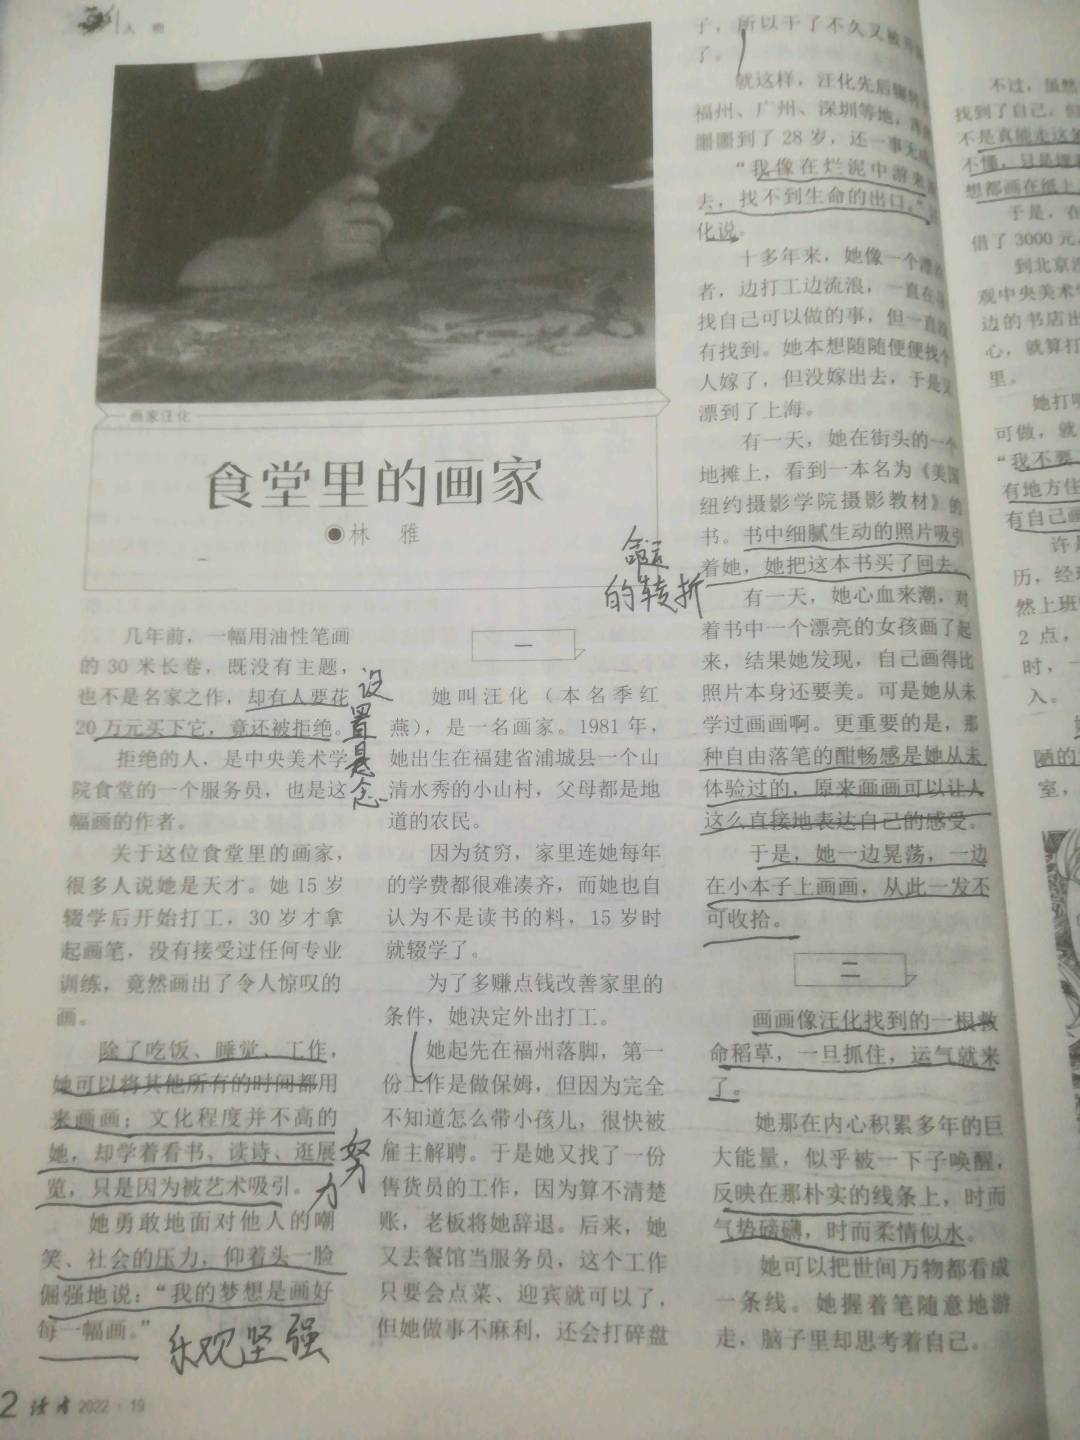 人物
画家汪化
食堂里的画家
●林 雅
几年前，一幅用油性笔画
的 30 米长卷，既没有主题，
也不是名家之作，却有人要花
20 万元买下它，竟还被拒绝。
设置悬念
拒绝的人，是中央美术学
院食堂的一个服务员，也是这
幅画的作者。
关于这位食堂里的画家，
很多人说她是天才。她 15 岁
辍学后开始打工，30 岁才拿
起画笔，没有接受过任何专业
训练，竟然画出了令人惊叹的
画。
除了吃饭、睡觉、工作，
她可以将其他所有的时间都用
来画画；文化程度并不高的
她，却学着看书、读诗、逛展
览，只是因为被艺术吸引。
努力
她勇敢地面对他人的嘲
笑、社会的压力，仰着头一脸
倔强地说：“我的梦想是画好
每一幅画。”
乐观坚强
一
她叫汪化（本名季红
燕），是一名画家。1981 年，
她出生在福建省浦城县一个山
清水秀的小山村，父母都是地
道的农民。
因为贫穷，家里连她每年
的学费都很难凑齐，而她也自
认为不是读书的料，15 岁时
就辍学了。
为了多赚点钱改善家里的
条件，她决定外出打工。
她起先在福州落脚，第一
份工作是做保姆，但因为完全
不知道怎么带小孩儿，很快被
雇主解聘。于是她又找了一份
售货员的工作，因为算不清楚
账，老板将她辞退。后来，她
又去餐馆当服务员，这个工作
只要会点菜、迎宾就可以了，
但她做事不麻利，还会打碎盘
子，所以干了不久又被
了。
就这样，汪化先后辗转
福州、广州、深圳等地，
囫囵到了 28 岁，还一事无
“我像在烂泥中游来
去，找不到生命的出口。”
化说。
十多年来，她像一个漂
者，边打工边流浪，一直在
找自己可以做的事，但一直
有找到。她本想随随便便找个
人嫁了，但没嫁出去，于是又
漂到了上海。
有一天，她在街头的一个
地摊上，看到一本名为《美国
纽约摄影学院摄影教材》的
书。书中细腻生动的照片吸引
着她，她把这本书买了回去。
命运
的转折
有一天，她心血来潮，对
着书中一个漂亮的女孩画了起
来，结果她发现，自己画得比
照片本身还要美。可是她从未
学过画画啊。更重要的是，那
种自由落笔的酣畅感是她从未
体验过的，原来画画可以让人
这么直接地表达自己的感受。
于是，她一边晃荡，一边
在小本子上画画，从此一发不
可收拾。
二
画画像汪化找到的一根救
命稻草，一旦抓住，运气就来
了。
她那在内心积累多年的巨
大能量，似乎被一下子唤醒，
反映在那朴实的线条上，时而
气势磅礴，时而柔情似水。
她可以把世间万物都看成
一条线。她握着笔随意地游
走，脑子里却思考着自己。
不过，虽然
找到了自己，但
不是真能走这条
不懂，只是埋
想都画在纸上
于是，在
借了 3000 元
到北京
观中央美术
边的书店出
心，就算打
里。
她打
可做，就
“我不要
有地方住
有自己画
许是
历，经
然上班
2 点，
时，一
入。
她
陋的
室，
2 读者 2022·19